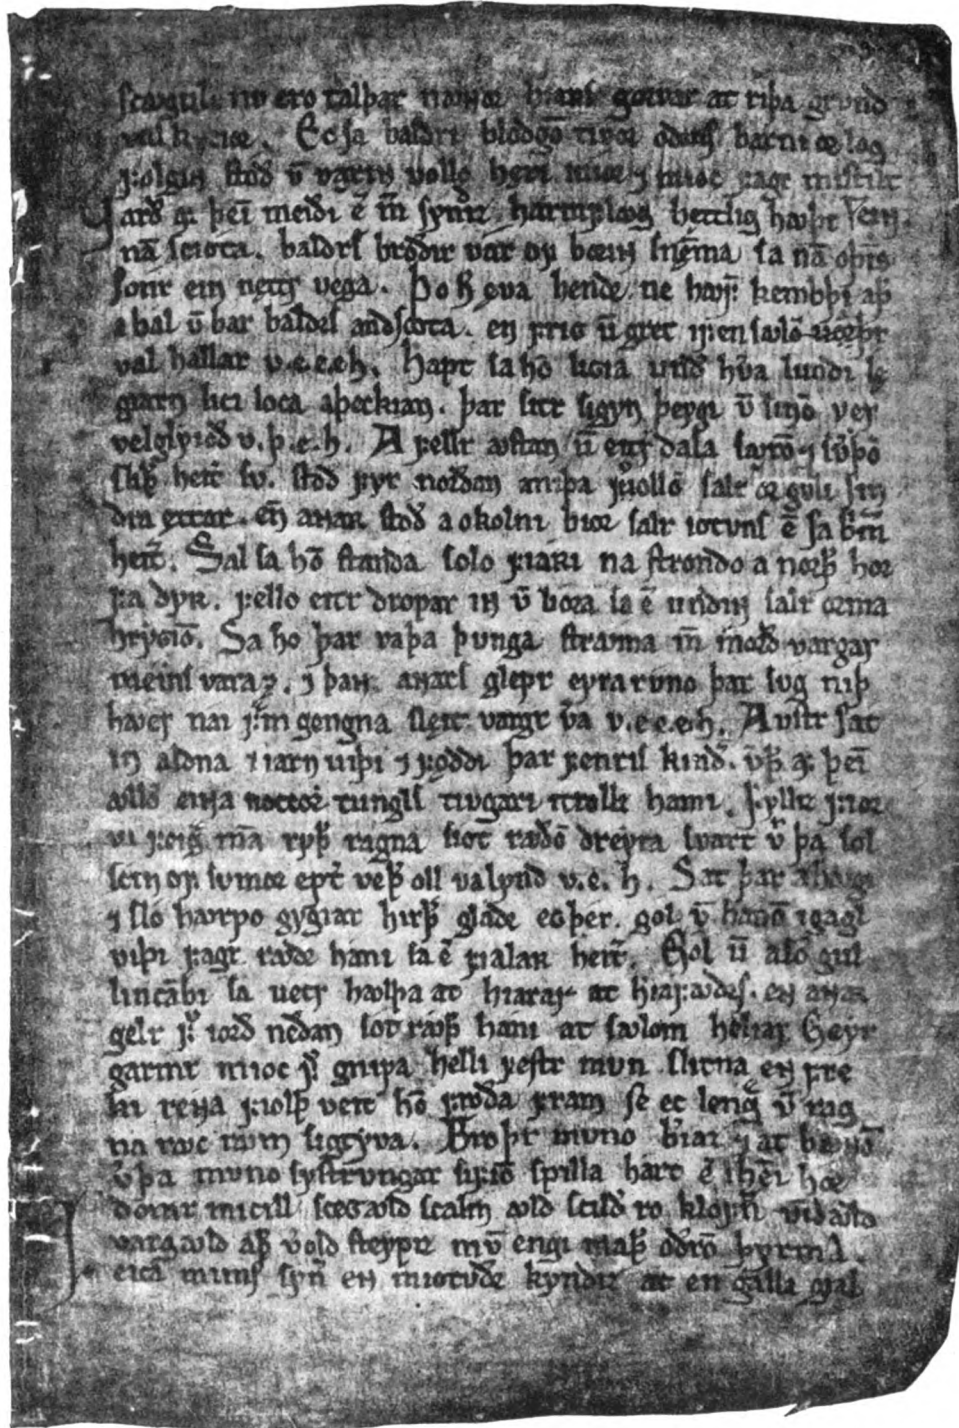 scaugul nv ero talþar nauɴor herianſ gorvar at riþa grvnd
valkyrior. Ec ſa baldri blodgō tivor odinſ barni ør log
folgin ſtod v̄ vaxiɴ vollo hęri mior ⁊ mioc fagr miſtilt
Varð af þeī meiði ē m̄ ſyndiz harmflaug hettlig hauþr
nā ſciota. baldrſ broðir var of borīɴ ſnēma ſa nā oþīſ
ſonr eiɴ nęttr vega. Þo h̄ ęva hendr ne hauf: kembþi aþ
a bal v̄ bar baldrſ andſcota. eɴ frig v̄ gret i fen ſaulō
val hallar v. e. e. eh. Hapt ſa hō ligia und hv̄a lundi lę
giarn liki loca aþeckiaɴ. þar ſitr ſigyn þeygi v̄ ſinō ver
velglyiod v. þ. e. h. A fellr auſtan v̄ eitr dala ſauxō ⁊ ſv̄þō
ſliþ heit̄ ſv. ſtod fyr nordan a niþa vollō ſalr or gulli ſin
dra ęttar. en̄ aɴaʀ ſtoð a okolni bior ſalr iotunſ ē ſa brim̄
heit̄. Sal ſa hō ſtanda ſolo fiaʀi na ſtrondo a norþ hor
fa dyʀ. fello eitr dropar iɴ v̄ liora ſa ē undiɴ ſalr orma
hryɢiō. Sa hō þar vaþa þunga ſtrauma m̄ⁿ morð vargar
meinſ vara. ⁊ þaɴ aɴarſ glepr eyra rvno þar ſug niþ
haucɢr nai f: m gengna ſleit vargr v̄a v. e. e. eh. Auſtr ſat
in aldna i iarn viþi ⁊ fęddi þar fenriſ kind̄. v̄þ̄ af þeī
aullō eiɴa nockoʀ tunglſ tivgari i trollz hami. Fylliz fior
vi feig m̄a ryþ̄ ragna ſiot raudō dreyra ſvart v̄ þa ſol
ſcin of ſvmor ept̄ veþ̄ oll valynd v. e. h. Sat þar a haugi
⁊ ſlo haurpo gygiar hirþ̄ glaðr egþer. gol v̄ hanō i gagl
viþi fagr raudr hani ſa ē fialaʀ heit̄. Gol v̄ aſō gul
lincābi ſa vecr haulþa at hiarar at hiarfaudrſ. en aɴaʀ
gelr f: iord nedan ſot rauþ̄ hani at ſaulom heliar Geyr
garmr mioc f: gnipa helli feſtr mvn ſlitna eɴ fre
ki reɴa fiolþ veit hō frǫda fram ſe ec lengra v̄ rag
na rauc raum ſigtyva. Brǫþr mvno beriaz ⁊ at banō
v̄þa mvno ſyſtrvngar ſifiō ſpilla hart ē i heī hor
domr micill ſceɢaold ſcalm aold ſcildir ro klofn̄ vindaold
vargaold aþ̄ v̄old ſteypiz mv̄ engi maþ̄ oðrō þyrma.
eica mimſ ſyn̄ en miotuðr kyndiz at en galla gial